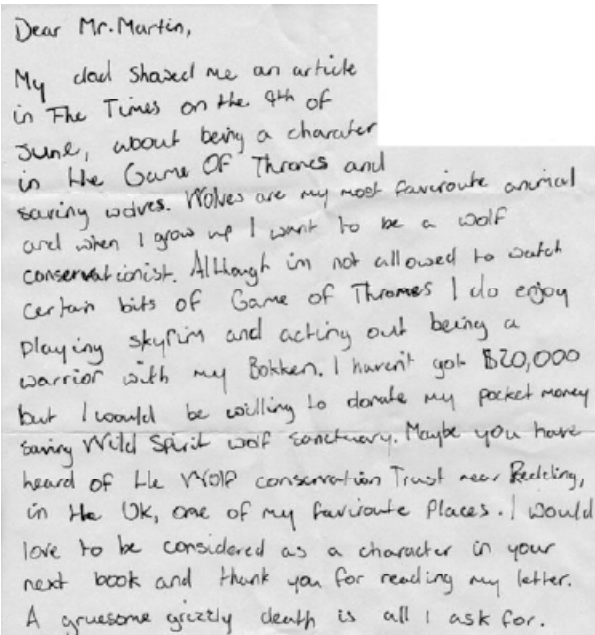 Dear Mr. Martin,
My dad shared me an article
in The Times on the 9th of
June, about being a charater
in the Game Of Thrones and
saving wolves. Wolves are my most faviroute animal
and when I grow up I want to be a wolf
conservationist. Although im not allowed to watch
certain bits of Game of Thrones I do enjoy
playing skyrim and acting out being a
warrior with my Bokken. I haven't got $20,000
but I would be willing to donate my pocket money
saving Wild Spirit wolf sanctuary. Maybe you have
heard of the Wolf conservation Trust near Redding,
in the Uk, one of my faviroute Places. I would
love to be considered as a character in your
next book and thank you for reading my letter.
A gruesome grizzly death is all I ask for.